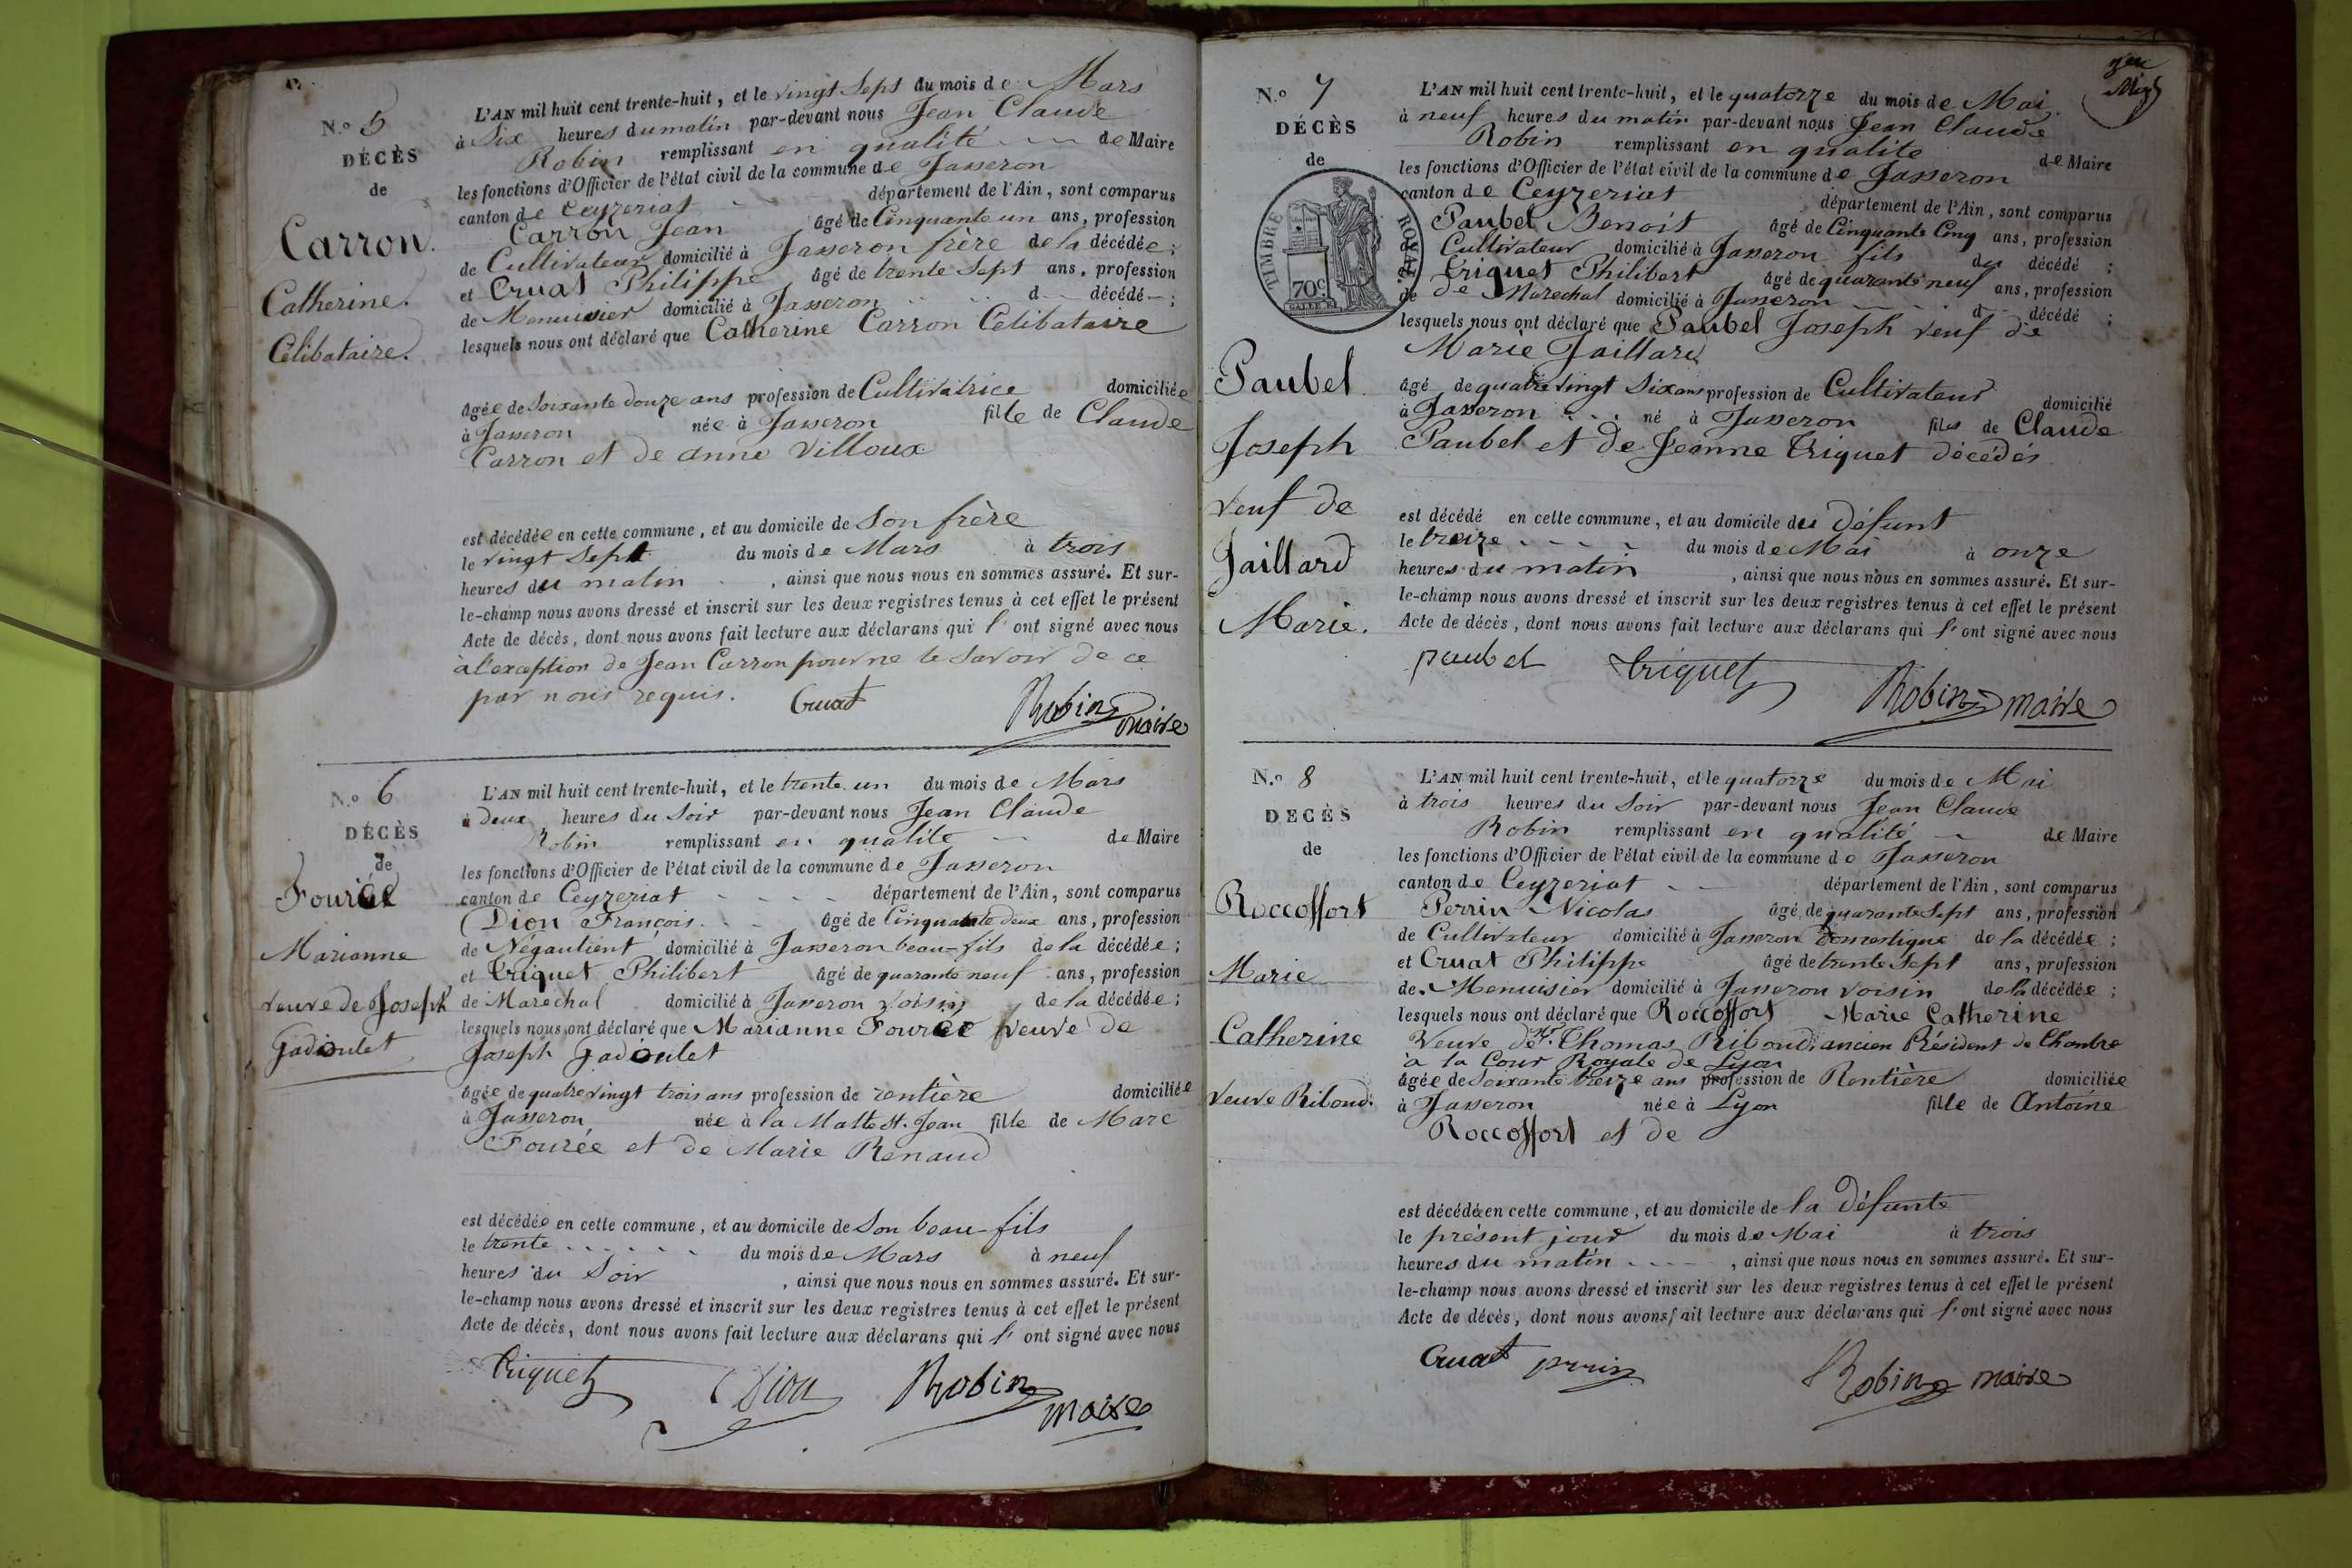 N.º 5
DÉCÈS
de
Carron.
Catherine.
Célibataire.
L'AN mil huit cent trente-huit, et le vingt Sept du mois de Mars
à Six heures du matin par-devant nous Jean Claude
Robin remplissant en qualité de Maire
les fonctions d'Officier de l'état civil de la commune de Jasseron
canton de Ceyzeriat département de l'Ain, sont comparus
Carron Jean âgé de Cinquante un ans, profession
de Cultivateur domicilié à Jasseron frère de la décédée;
et Cruat Philippe âgé de trente Sept ans, profession
de Menuisier domicilié à Jasseron d décédé;
lesquels nous ont déclaré que Catherine Carron Célibataire
âgée de Soixante douze ans profession de Cultivatrice domiciliée
à Jasseron née à Jasseron fille de Claude
Carron et de anne Villoux
est décédée en cette commune, et au domicile de Son frère
le vingt Sept du mois de Mars à trois
heures du matin, ainsi que nous nous en sommes assuré. Et sur-
le-champ nous avons dressé et inscrit sur les deux registres tenus à cet effet le présent
Acte de décès, dont nous avons fait lecture aux déclarans qui l'ont signé avec nous
à l'exception de Jean Carron pour ne le Savoir de ce
par nous requis. Cruat Robin maire
N.º 6
DÉCÈS
de
Fourée
Marianne
veuve de Joseph
Gadoulet
L'AN mil huit cent trente-huit, et le trente un du mois de Mars
à Deux heures du Soir par-devant nous Jean Claude
Robin remplissant en qualité de Maire
les fonctions d'Officier de l'état civil de la commune de Jasseron
canton de Ceyzeriat département de l'Ain, sont comparus
Dion François âgé de Cinquante deux ans, profession
de Négautient domicilié à Jasseron beau-fils de la décédée;
et Triquet Philibert âgé de quarante neuf ans, profession
de Maréchal domicilié à Jasseron voisin de la décédée;
lesquels nous ont déclaré que Marianne Fourée veuve de
Joseph Gadoulet
âgée de quatre vingt trois ans profession de rentière domiciliée
à Jasseron née à la Motte St. Jean fille de Marc
Fourée et de Marie Renaud
est décédée en cette commune, et au domicile de Son beau-fils
le trente du mois de Mars à neuf
heures du Soir, ainsi que nous nous en sommes assuré. Et sur-
le-champ nous avons dressé et inscrit sur les deux registres tenus à cet effet le présent
Acte de décès, dont nous avons fait lecture aux déclarans qui l'ont signé avec nous
Triquet Dion Robin
maire
N.º 7
DÉCÈS
de
TIMBRE ROYAL
70c
Paubel
Joseph
veuf de
Jaillard
Marie.
L'AN mil huit cent trente-huit, et le quatorze du mois de Mai
à neuf heures du matin par-devant nous Jean Claude
Robin remplissant en qualité de Maire
les fonctions d'Officier de l'état civil de la commune de Jasseron
canton de Ceyzeriat département de l'Ain, sont comparus
Paubel Benoit âgé de Cinquante Cinq ans, profession
de Cultivateur domicilié à Jasseron fils du décédé;
et Triquet Philibert âgé de quarante neuf ans, profession
de de Maréchal domicilié à Jasseron d décédé;
lesquels nous ont déclaré que Paubel Joseph veuf de
Marie Jaillard
âgé de quatre vingt Six ans profession de Cultivateur domicilié
à Jasseron né à Jasseron fils de Claude
Paubel et de Jeanne Triquet décédés
est décédé en cette commune, et au domicile du Défunt
le treize du mois de Mai à onze
heures du matin, ainsi que nous nous en sommes assuré. Et sur-
le-champ nous avons dressé et inscrit sur les deux registres tenus à cet effet le présent
Acte de décès, dont nous avons fait lecture aux déclarans qui l'ont signé avec nous
paubel Triquet Robin maire
N.º 8
DECÈS
de
Roccoffort
Marie
Catherine
veuve Riboud.
L'AN mil huit cent trente-huit, et le quatorze du mois de Mai
à trois heures du Soir par-devant nous Jean Claude
Robin remplissant en qualité de Maire
les fonctions d'Officier de l'état civil de la commune de Jasseron
canton de Ceyzeriat département de l'Ain, sont comparus
Perrin Nicolas âgé de quarante Sept ans, profession
de Cultivateur domicilié à Jasseron Domestique de la décédée;
et Cruat Philippe âgé de trente Sept ans, profession
de Menuisier domicilié à Jasseron voisin de la décédée;
lesquels nous ont déclaré que Roccoffort Marie Catherine
Veuve de Mr. Thomas Riboud, ancien Président de Chambre
à la Cour Royale de Lyon
âgée de Soixante treize ans profession de Rentière domiciliée
à Jasseron née à Lyon fille de Antoine
Roccoffort et de
est décédée en cette commune, et au domicile de la Défunte
le présent jour du mois de Mai à trois
heures du matin, ainsi que nous nous en sommes assuré. Et sur-
le-champ nous avons dressé et inscrit sur les deux registres tenus à cet effet le présent
Acte de décès, dont nous avons fait lecture aux déclarans qui l'ont signé avec nous
Cruat perrin Robin maire